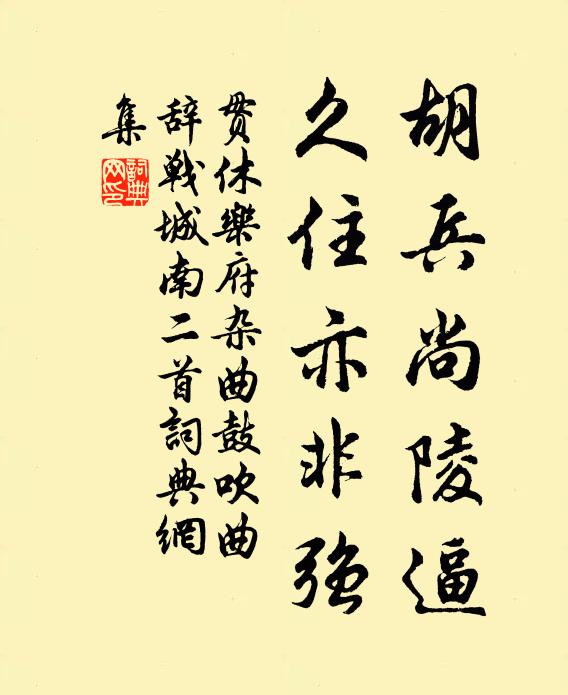 胡兵尚陵逼
久住亦非强
贯休樂府杂曲鼓吹曲
辞戦城南二首詞典網
集
詞典
网印